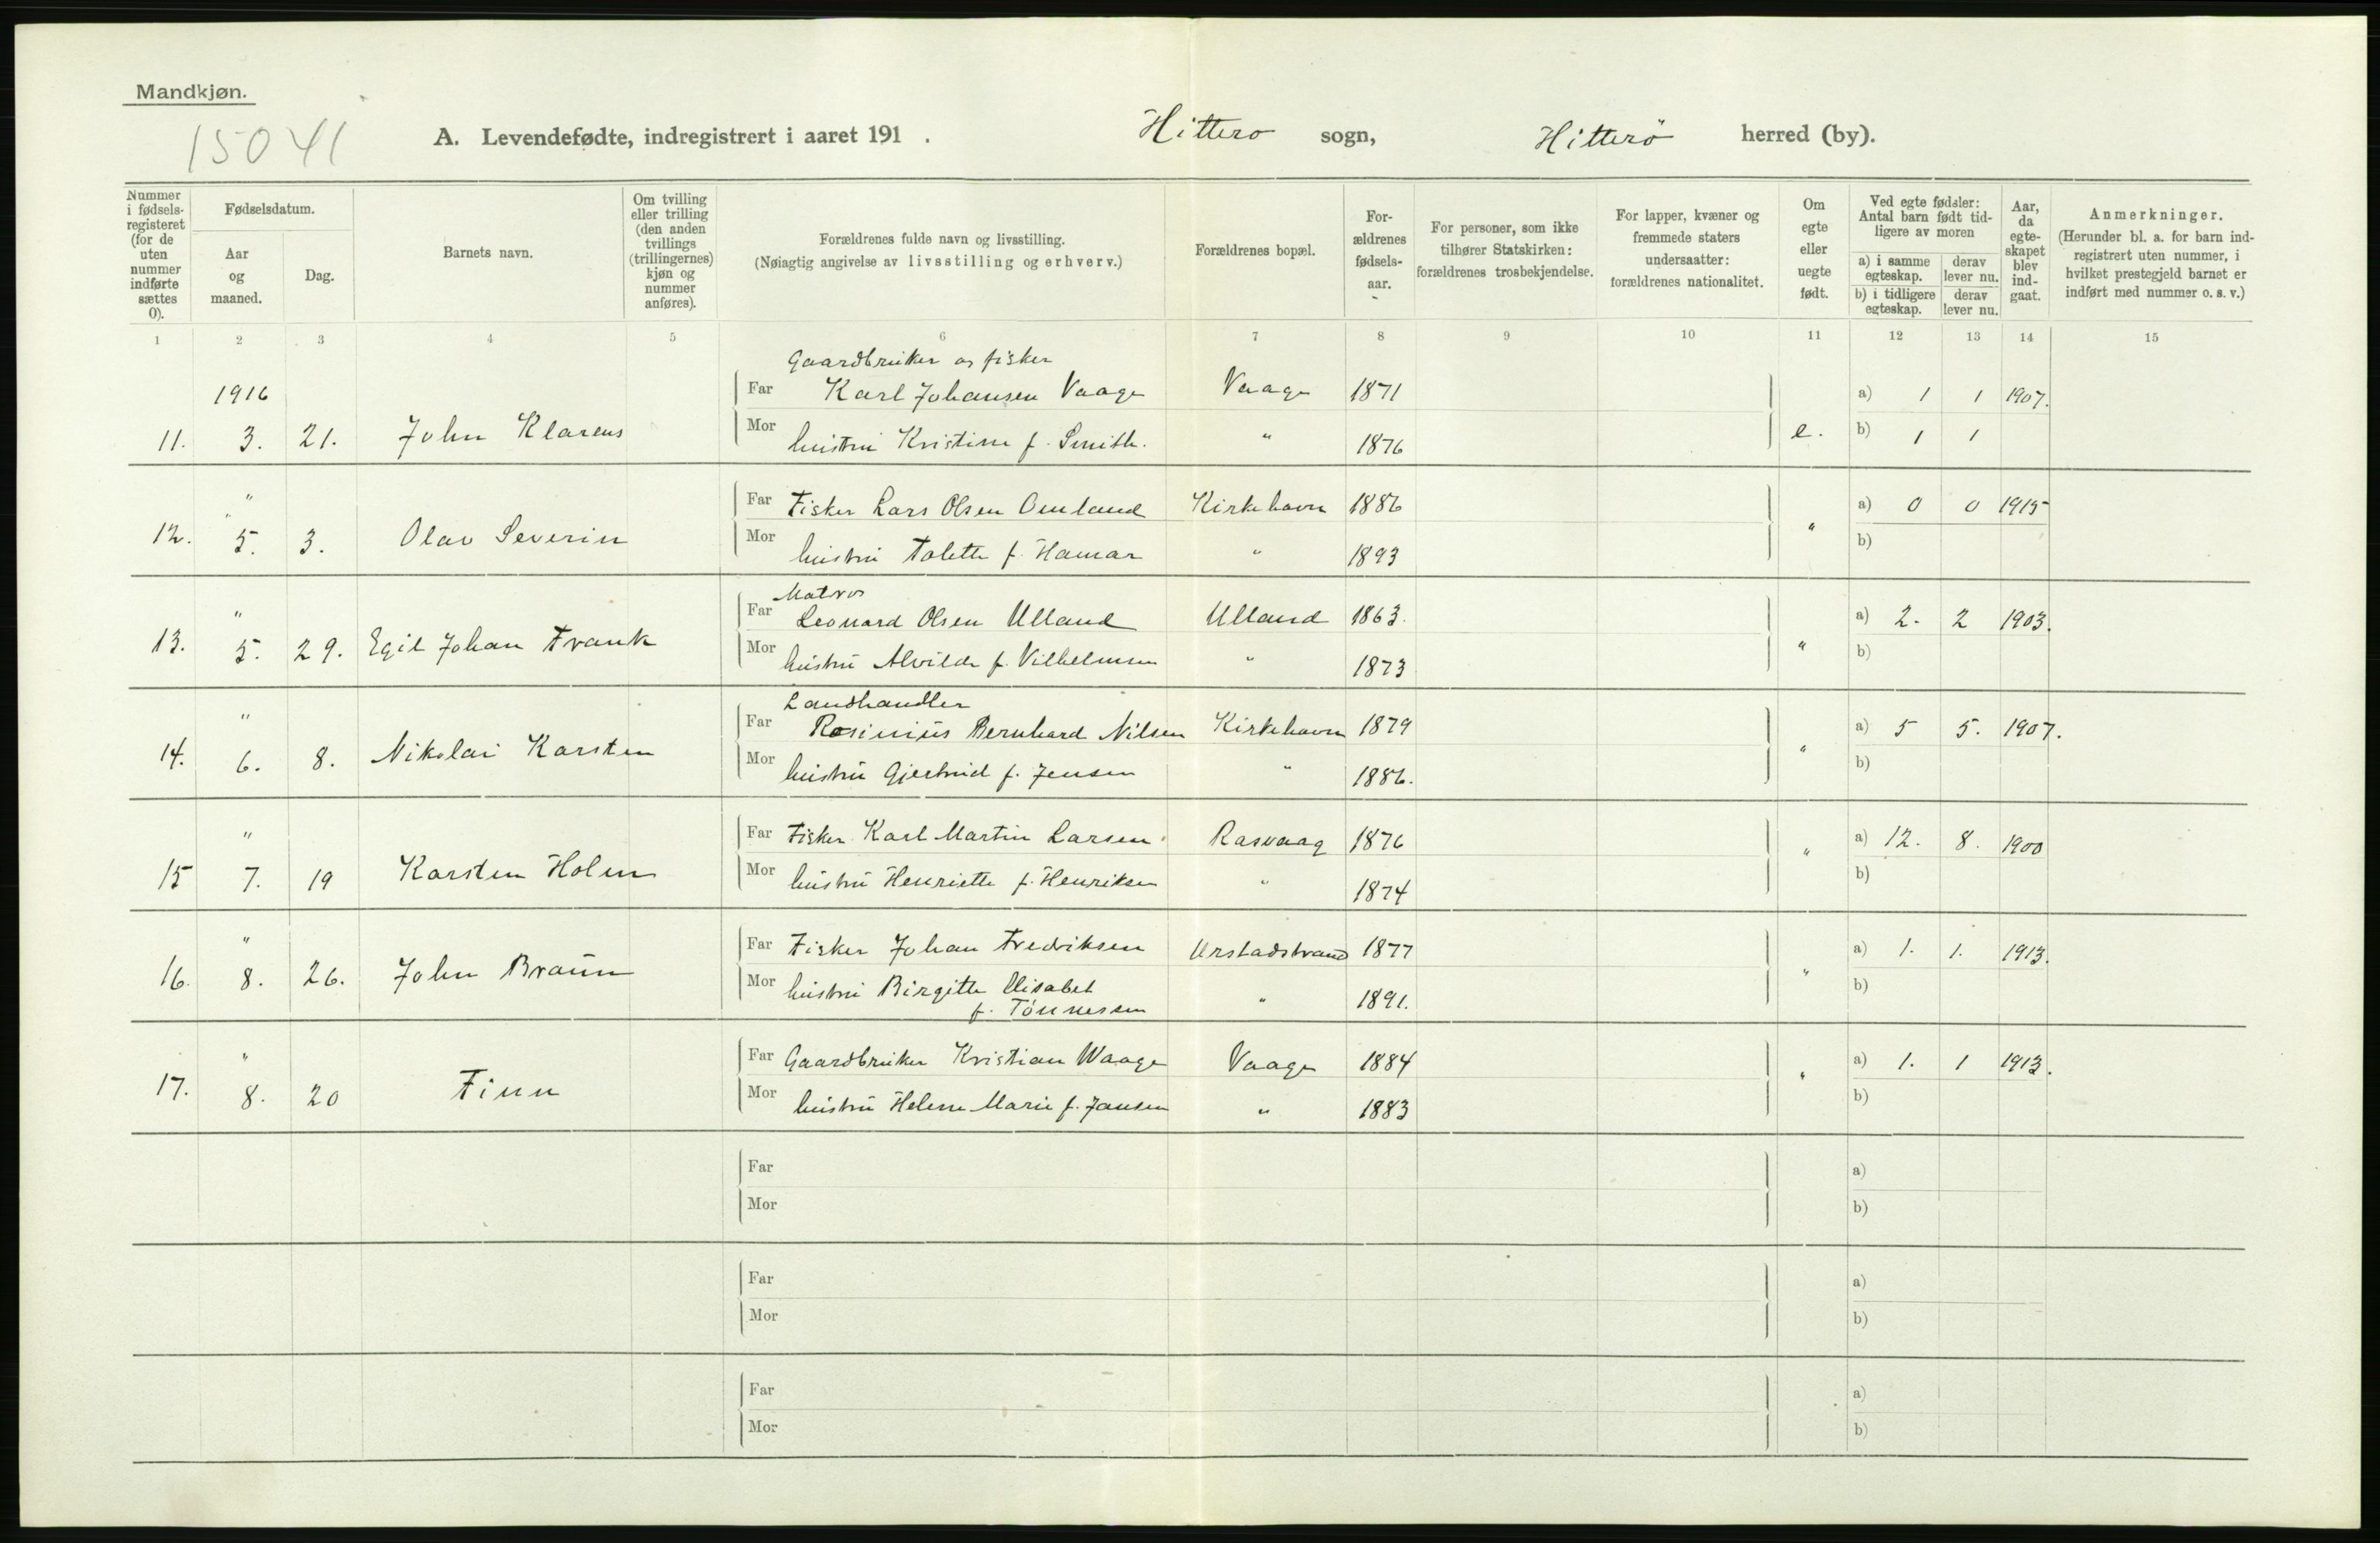 Mandkjøn.
15041
A. Levendefødte, indregistrert i aaret 191 .
Hittero sogn, Hitterö herred (by).
Nummer i fødsels-registeret (for de uten nummer indførte sættes 0).
Fødselsdatum.
Aar og maaned.
Dag.
Barnets navn.
Om tvilling eller trilling (den anden tvillings (trillingernes) kjøn og nummer anføres).
Forældrenes fulde navn og livsstilling.
(Nøiagtig angivelse av livsstilling og erhverv.)
Forældrenes bopæl.
For-ældrenes fødsels-aar.
For personer, som ikke tilhører Statskirken: forældrenes trosbekjendelse.
For lapper, kvæner og fremmede staters undersaatter: forældrenes nationalitet.
Om egte eller uegte født.
Ved egte fødsler: Antal barn født tid-ligere av moren
a) i samme egteskap. derav lever nu.
b) i tidligere egteskap. derav lever nu.
Aar, da egte-skapet blev ind-gaat.
Anmerkninger.
(Herunder bl. a. for barn ind-registrert uten nummer, i hvilket prestegjeld barnet er indført med nummer o. s. v.)
1 2 3 4 5 6 7 8 9 10 11 12 13 14 15
Gaardbruker og fisker
1916 Far Karl Johansen Vaage Vaage 1871 a) 1 1 1907.
11. 3. 21. John Klarens Mor hustru Kristine f. Smith. " 1876 e. b) 1 1
" Far Fisker Lars Olsen Omland Kirkehavn 1886 a) 0 0 1915
12. " 5. 3. Olav Severin Mor hustru Tolette f. Hamar " 1893 " b)
Matros
" Far Leonard Olsen Ulland Ulland 1863. a) 2. 2 1903.
13. 5. 29. Egil Johan Frank Mor hustru Alvilde f. Vilhelmsen " 1873 " b)
Landhandler
" Far Rosinius Bernhard Nilsen Kirkehavn 1879 a) 5 5. 1907.
14. 6. 8. Nikolai Karsten Mor hustru Gjertrud f. Jensen " 1886. " b)
" Far Fisker Karl Martin Larsen Rasvaag 1876 a) 12. 8. 1900
15 7. 19 Karsten Holm Mor hustru Henriette f. Henriksen " 1874 " b)
" Far Fisker Johan Fredriksen Urstadstrand 1877 a) 1. 1. 1913.
16. 8. 26. John Braün Mor hustru Birgitte Elisabet " 1891. " b)
f. Tönnessen
" Far Gaardbruker Kristian Waage Vaage 1884 a) 1. 1 1913.
17. 8. 20 Finn Mor hustru Helene Marie f. Jansen " 1883 " b)
Far a)
Mor b)
Far a)
Mor b)
Far a)
Mor b)